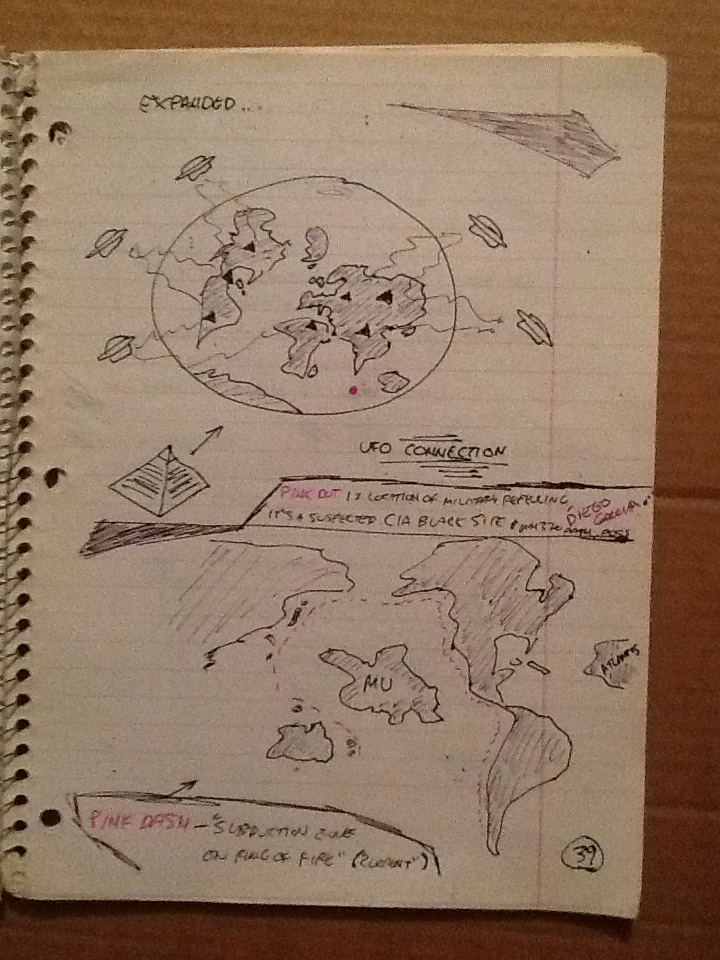 EXPANDED..
UFO CONNECTION
PINK DOT IS LOCATION OF MILITARY REFUELING "DIEGO GARCIA".
IT'S A SUSPECTED CIA BLACK SITE &
MU
ATLANTIS
PINK DASH - "SUBDUCTION ZONE
ON RING OF FIRE" (CURRENT)
39